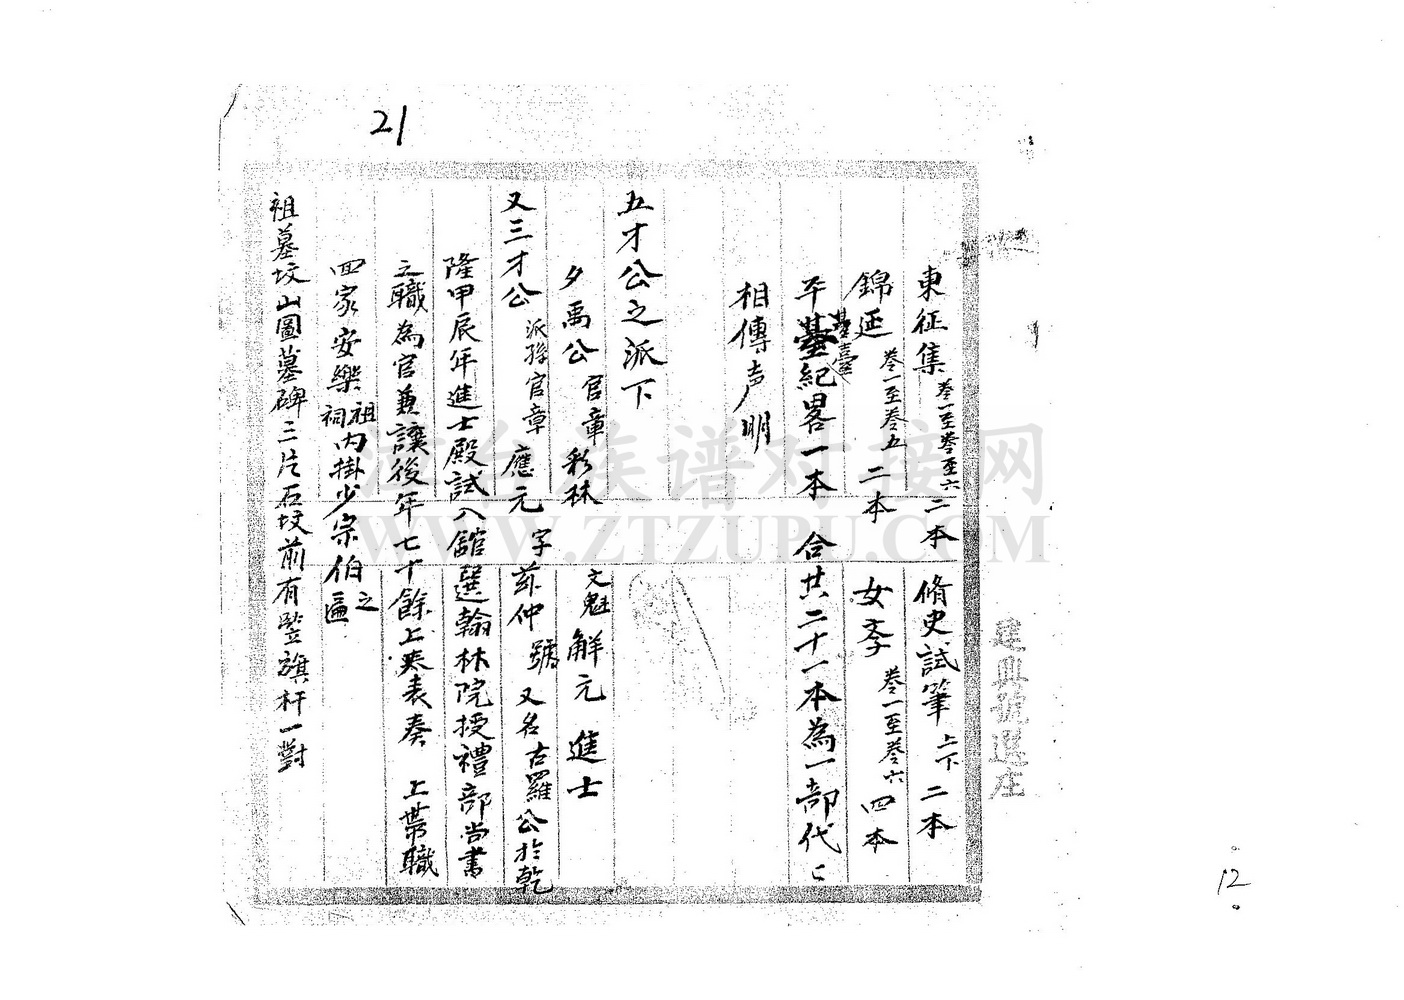 21
東征集 卷一至卷至六 二本 脩史試筆 上下 二本
錦延 卷一至卷五 二本 女孝 卷一至卷六 四本
平臺紀畧一本 合共二十一本為一部代〻
相傳声明
五才公之派下
夕禹公 官章彩林 文魁 解元 進士
又三才公 派孫官章 應元 字茲仲 號 又名古羅公於乾
隆甲辰年進士殿試入館選翰林院授禮部尚書
之職為官兼讓後年七十餘上表奏 上帶職
回家安樂祖祠內掛少宗伯之匾
祖墓坟山圖墓碑三片石坟前有竪旗杆一對
建興號選庄
12
漳台族谱对接网
WWW.ZTZUPU.COM